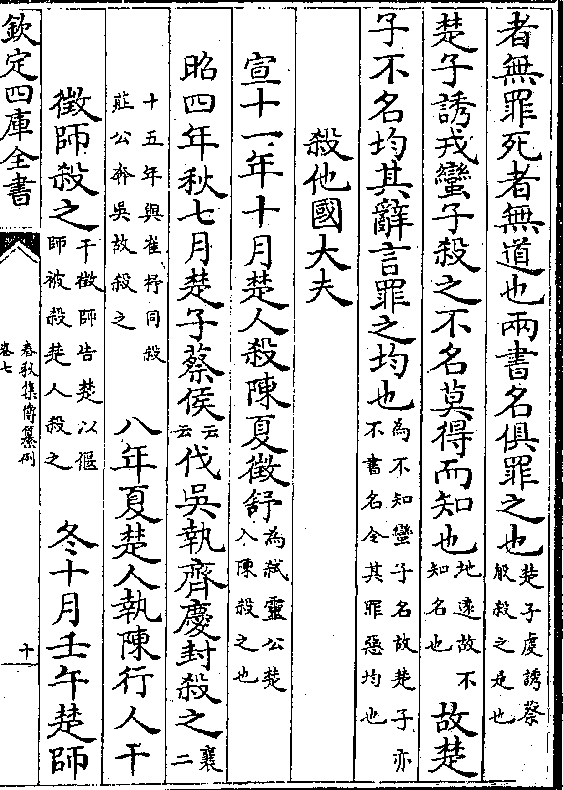 者無罪死者無道也兩書名俱罪之也楚子虔誘蔡般殺之是也
楚子誘戎蠻子殺之不名莫得而知也地遠故不知名也故楚
子不名均其辭言罪之均也為不知蠻子名故楚子亦不書名令其罪惡均也
殺他國大夫
宣十一年十月楚人殺陳夏徵舒為弑靈公楚入陳殺之也
昭四年秋七月楚子蔡侯云云伐吳執齊慶封殺之襄二
十五年與崔杼同殺莊公奔吳故殺之八年夏楚人執陳行人干
徵師殺之干徵師告楚以偃師被殺楚人殺之冬十月壬午楚師
欽定四庫全書
春秋集傳纂例
卷七
十